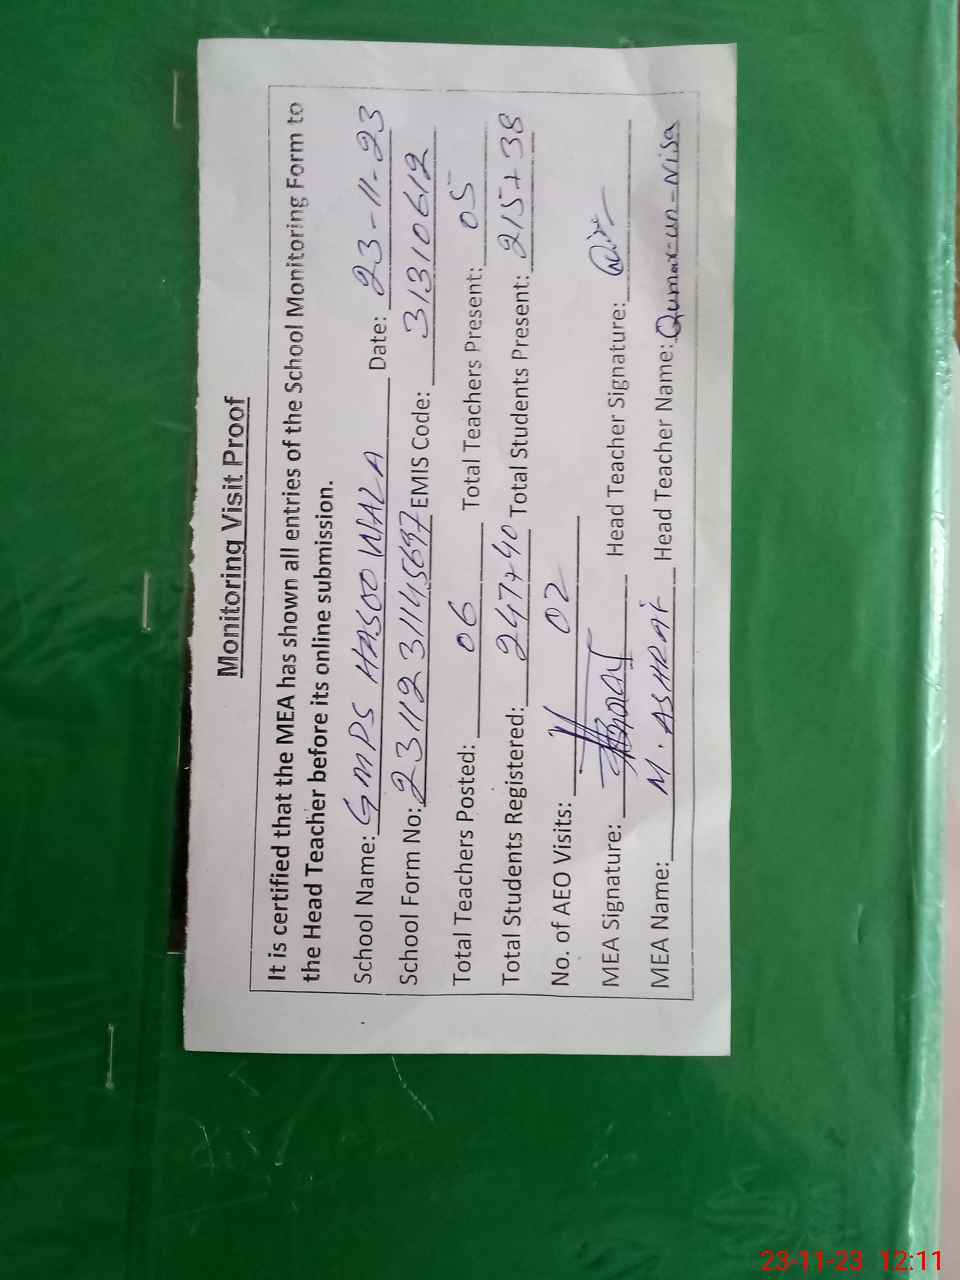 Monitoring Visit Proof
It is certified that the MEA has shown all entries of the School Monitoring Form to
the Head Teacher before its online submission.
School Name: GMPS HASOO WALA Date: 23-11-23
School Form No: 23112311145697 EMIS Code: 31310612
Total Teachers Posted: 06 Total Teachers Present: 05
Total Students Registered: 247+40 Total Students Present: 215+38
No. of AEO Visits: 02
MEA Signature: Head Teacher Signature:
MEA Name: M. ASHRAF Head Teacher Name: Qumar-un-Nisa
23-11-23 12:11